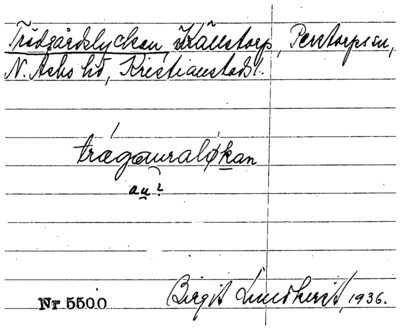 Trädgårdslyckan, Källstorp, Perstorps sn,
N. Åsbo hd, Kristianstads l.
trágauralǿkan
au?
Nr 5500 Birgit Lundkvist, 1936.